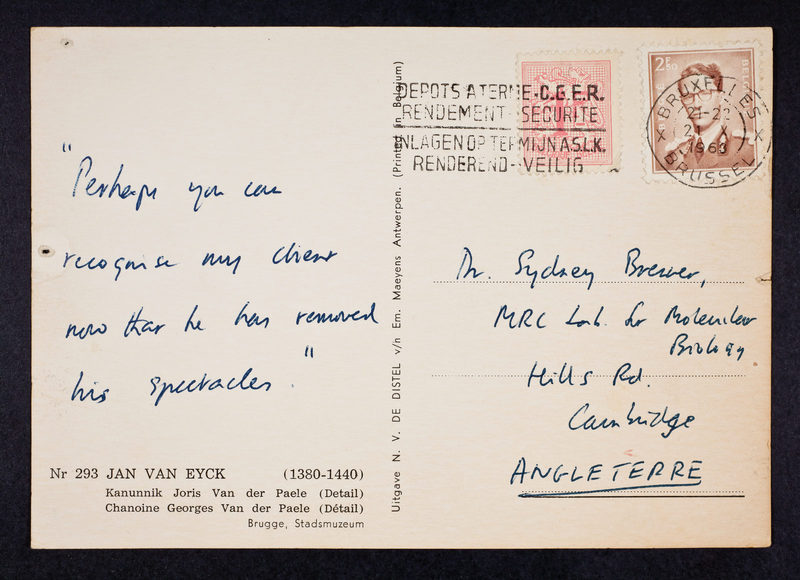 "Perhaps you can
recognise my client
now that he has removed
his spectacles."
Nr 293 JAN VAN EYCK (1380-1440)
Kanunnik Joris Van der Paele (Detail)
Chanoine Georges Van der Paele (Détail)
Brugge, Stadsmuseum
Uitgave N. V. DE DISTEL v/n Em. Maeyens Antwerpen. (Printed in Belgium)
DEPOTS A TERME-C.G.E.R.
RENDEMENT-SECURITE
INLAGEN OP TERMIJN A.S.L.K.
RENDEREND-VEILIG
2F50
BRUXELLES
21-22
21 X
1963
BRUSSEL
Dr. Sydney Brenner,
MRC Lab. for Molecular
Biology
Hills Rd.
Cambridge
ANGLETERRE